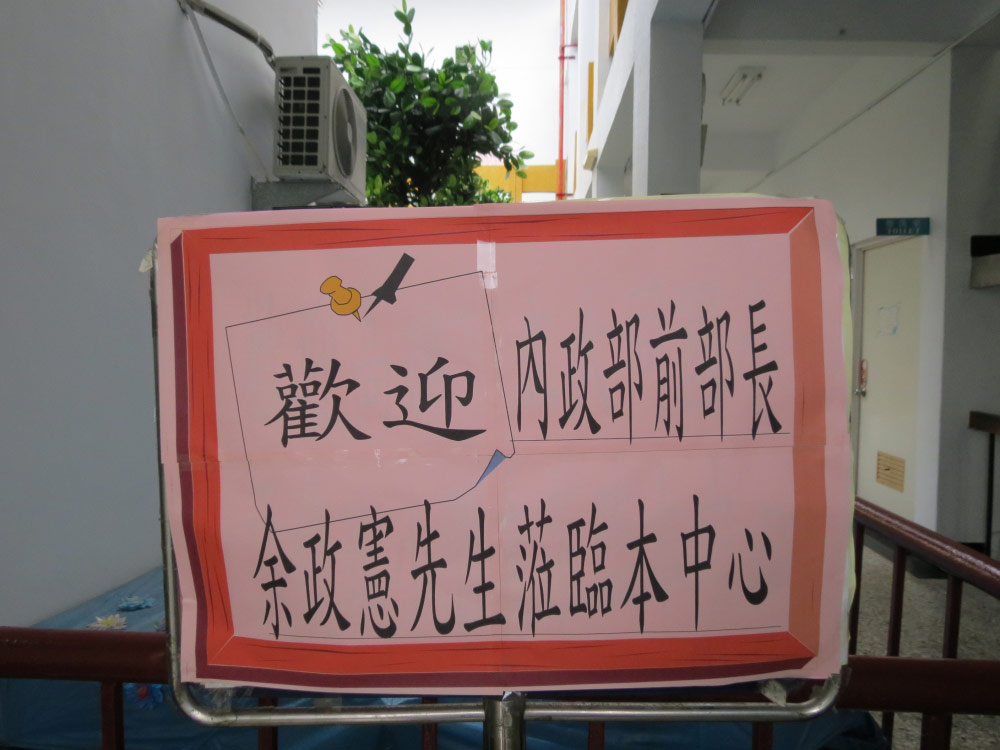 歡迎內政部前部長
余政憲先生蒞臨本中心
TOILET